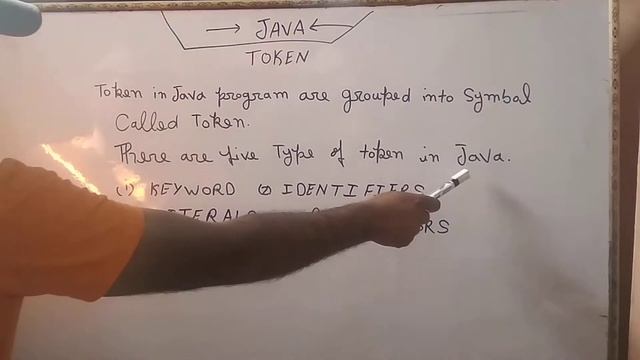 → JAVA ←
TOKEN
Token in Java program are grouped into Symbol
Called Token.
There are five Type of token in Java.
(1) KEYWORD (2) IDENTIFIERS